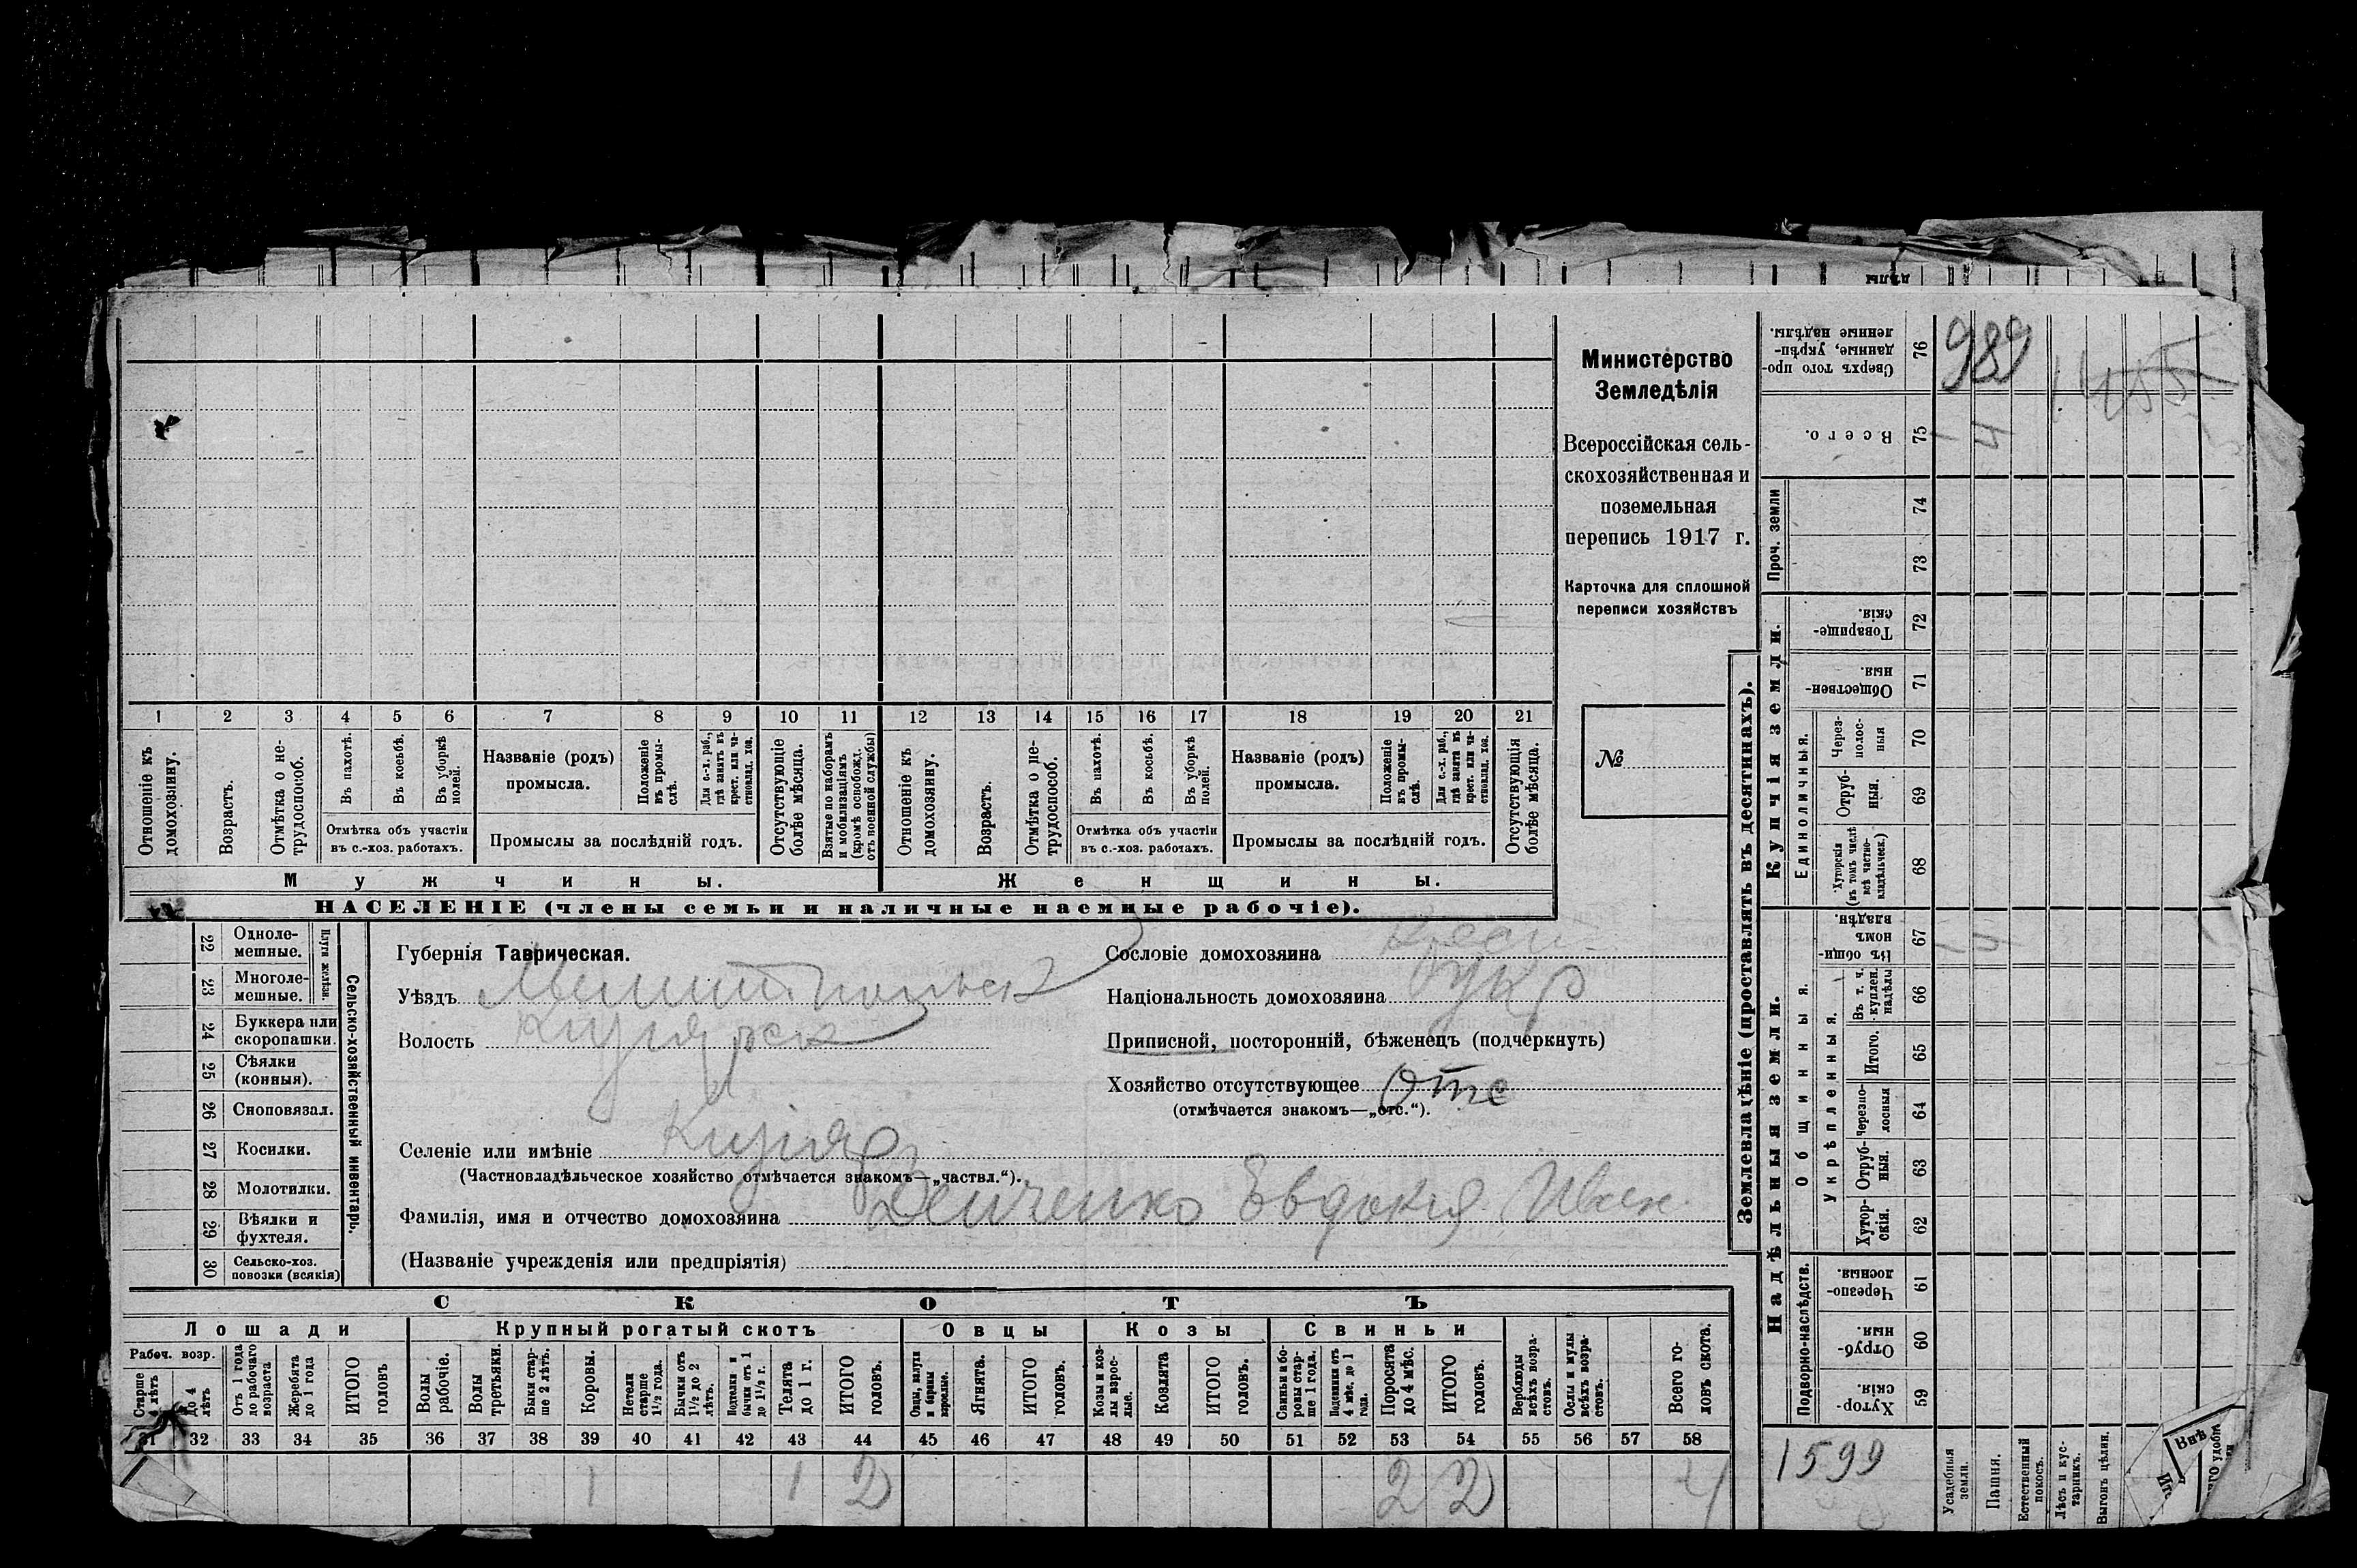 Министерство
Земледѣлія
Всероссійская сель-
скохозяйственная и
поземельная
перепись 1917 г.
Карточка для сплошной
переписи хозяйствъ
№
1 2 3 4 5 6 7 8 9 10 11 12 13 14 15 16 17 18 19 20 21
Отношеніе къ домохозяину.
Возрастъ.
Отмѣтка о не-трудоспособ.
Въ пахотѣ.
Въ косьбѣ.
Въ уборкѣ полей.
Отмѣтка объ участіи
въ с.-хоз. работахъ.
Названіе (родъ)
промысла.
Положеніе въ промы-слѣ.
Для с.-х. раб., гдѣ занятъ въ крест. или ча-стновлад. хоз.
Промыслы за послѣдній годъ.
Отсутствующіе болѣе мѣсяца.
Взятые по наборамъ и мобилизаціямъ (кромѣ освобожд. отъ военной службы)
Отношеніе къ домохозяину.
Возрастъ.
Отмѣтка о не-трудоспособ.
Въ пахотѣ.
Въ косьбѣ.
Въ уборкѣ полей.
Отмѣтка объ участіи
въ с.-хоз. работахъ.
Названіе (родъ)
промысла.
Положеніе въ промы-слѣ.
Для с.-х. раб., гдѣ занята въ крест. или ча-стновлад. хоз.
Промыслы за послѣдній годъ.
Отсутствующія болѣе мѣсяца.
Мужчины. Женщины.
НАСЕЛЕНІЕ (члены семьи и наличные наемные рабочіе).
22 Одноле-мешные.
23 Многоле-мешные.
Плуги желѣзн.
24 Буккера или скоропашки.
25 Сѣялки (конныя).
26 Сноповязал.
27 Косилки.
28 Молотилки.
29 Вѣялки и фухтеля.
30 Сельско-хоз. повозки (всякія)
Сельско-хозяйственный инвентарь.
Губернія Таврическая.
Уѣздъ Мелитопольск
Волость Кизіярск
Селеніе или имѣніе Кизіяръ
(Частновладѣльческое хозяйство отмѣчается знакомъ—„частвл.“).
Фамилія, имя и отчество домохозяина Демченко Евдокія Иван
(Названіе учрежденія или предпріятія)
Сословіе домохозяина Крест
Національность домохозяина укр
Приписной, посторонній, бѣженецъ (подчеркнуть)
Хозяйство отсутствующее отс
(отмѣчается знакомъ—„отс.“).
СКОТЪ
Лошади Крупный рогатый скотъ Овцы Козы Свиньи
Рабоч. возр.
Старше 4 лѣтъ
До 4 лѣтъ
Отъ 1 года до рабочаго возраста
Жеребята до 1 года
ИТОГО головъ
Волы рабочіе.
Волы третьяки.
Быки стар-ше 2 лѣтъ.
Коровы.
Нетели старше 1½ года.
Бычки отъ 1½ до 2 лѣтъ.
Подтелки и бычки отъ 1 до 1½ г.
Телята до 1 г.
ИТОГО головъ.
Овцы, валухи и бараны взрослые.
Ягнята.
ИТОГО головъ.
Козы и коз-лы взрос-лые.
Козлята
ИТОГО головъ.
Свиньи и бо-ровы стар-ше 1 года.
Подсвинки отъ 4 мѣс. до 1 года.
Поросята до 4 мѣс.
ИТОГО головъ.
Верблюды всѣхъ возра-стовъ.
Ослы и мулы всѣхъ возра-стовъ.
Всего го-ловъ скота.
31 32 33 34 35 36 37 38 39 40 41 42 43 44 45 46 47 48 49 50 51 52 53 54 55 56 57 58
1 1 2 2 2 4
Землевладѣніе (проставлять въ десятинахъ).
Купчія земли.
Надѣльныя земли.
Проч. земли
Единоличныя.
Общинныя.
Укрѣпленныя.
Подворно-наслѣдств.
76 Сверхъ того про-данные, укрѣп-ленные надѣлы.
75 Всего.
74
73
72 Товарище-скія.
71 Обществен-ныя
70 Через-полос-ныя
69 Отруб-ныя.
68 Хуторскія (въ томъ числѣ всѣ частно-владѣльческ.)
67 Въ общи-номъ владѣн.
66 Въ т. ч. куплен. надѣлы
65 Итого.
64 Черезпо-лосныя
63 Отруб-ныя.
62 Хутор-скія.
61 Черезпо-лосныя.
60 Отруб-ныя.
59 Хутор-скія.
989
4
1599
Усадебныя земли.
Пашня.
Естественный покосъ.
Лѣсъ и кус-тарникъ.
Выгонъ цѣлин.